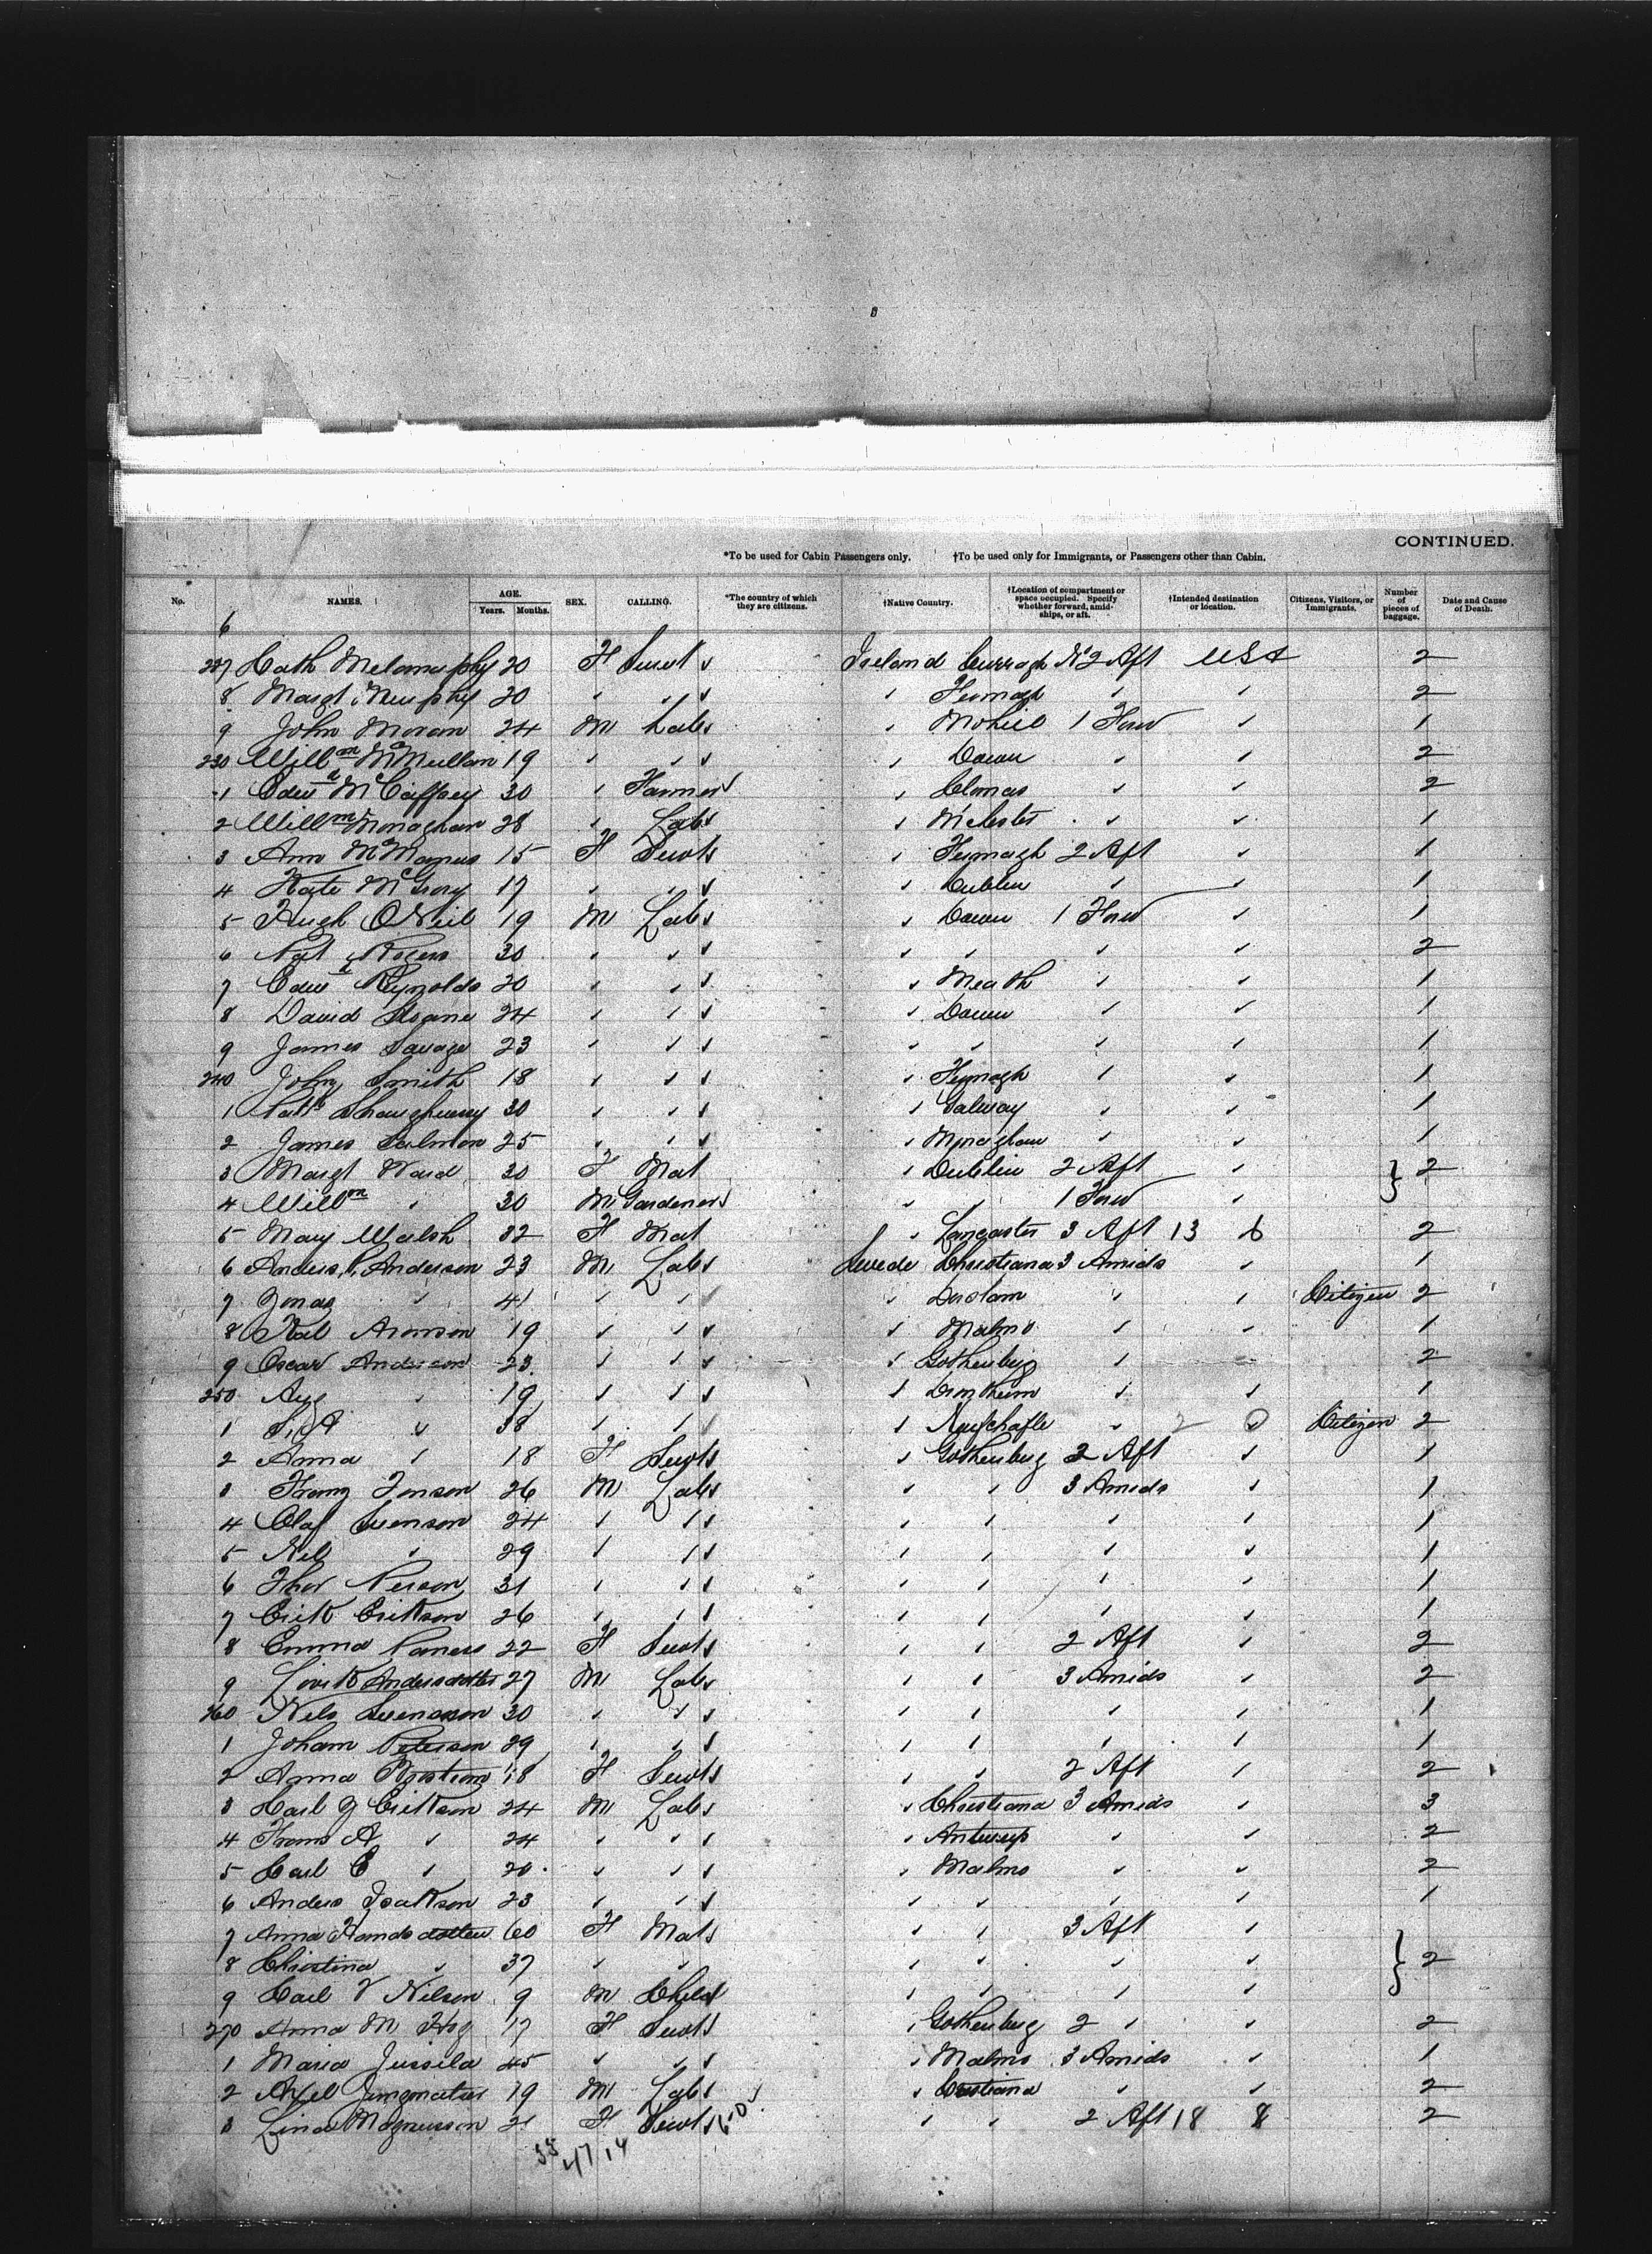 CONTINUED.
*To be used for Cabin Passengers only. †To be used only for Immigrants, or Passengers other than Cabin.
No. NAMES. AGE. Years. Months. SEX. CALLING. *The country of which they are citizens. †Native Country. †Location of compartment or space occupied. Specify whether forward, amidships, or aft. †Intended destination or location. Citizens, Visitors, or Immigrants. Number of pieces of baggage. Date and Cause of Death.
6
227 Cath 20 F Servt Ireland Curragh No 2 Aft USA 2
8 Margt Murphy 20 " " " " " 2
9 John Moran 24 M Labr " Mohill 1 Forw " 1
230 Willm McMullan 19 " " " Down " " 2
1 Edwd McCaffrey 30 " Farmer " Clonas " " 2
2 Willm Monaghan 28 " Labr " " " 1
3 Ann McManus 15 F Servt " 2 Aft " 1
4 Kate McGrory 17 " " " Dublin " " 1
5 Hugh ONeil 19 M Labr " Down 1 Forw " 1
6 Pat Rogers 30 " " " " " " 2
7 Edwd Reynolds 20 " " " Meath " " 1
8 David Sloane 24 " " " Down " " 1
9 James Savage 23 " " " " " " 1
240 John Smith 18 " " " " " 1
1 Patk Shaughnessy 30 " " " Galway " " 1
2 James Salmon 25 " " " Monaghan " " 1
3 Margt Ward 30 F Mat " Dublin 2 Aft " } 2
4 Willm " 30 M Gardener " " 1 Forw "
5 Mary Walsh 32 F Mat " Lancaster 3 Aft 13 6 2
6 Anders P. Anderson 23 M Labr Swede Christiana 3 Amids " 1
7 Jonas " 41 " " " " " Citizen 2
8 Aronson 19 " " " Malmo " " 1
9 Oscar Anderson 23 " " " Gothenburg " " 2
250 Aug " 19 " " " Drontheim " " 1
1 " 38 " " " " 2 Citizen 2
2 Anna " 18 F Servt " Gothenburg 2 Aft " 1
3 Franz Jonson 26 M Labr " " 3 Amids " 1
4 Olaf Svenson 24 " " " " " " 1
5 Nils " 29 " " " " " " 1
6 Thor Person 31 " " " " " " 1
7 Erik Erikson 26 " " " " " " 1
8 Emma 22 F Servt " " 2 Aft " 2
9 Andersdotter 27 M Labr " " 3 Amids " 2
260 Nils Swenson 30 " " " " " " 1
1 Joham Peterson 29 " " " " " " 1
2 Anna 18 F Servt " " 2 Aft " 2
3 Carl J Erikson 24 M Labr " Christiana 3 Amids " 3
4 Frans A " 24 " " " Antwerp " " 2
5 Carl E " 20 " " " Malmo " " 2
6 Anders Isakson 23 " " " " " " 1
7 Anna 60 F Mat " " 3 Aft "
8 Christina " 37 " " " " " " } 2
9 Carl V Nilson 9 M Child " " " "
270 Anna M 17 F Servt " Gothenburg 2 " " 2
1 Maria Jussila 45 " " " Malmo 3 Amids " 1
2 Axel 19 M Labr " Cristiana " " 2
3 Lina Magnusson 21 F Servt " " 2 Aft 18 8 2